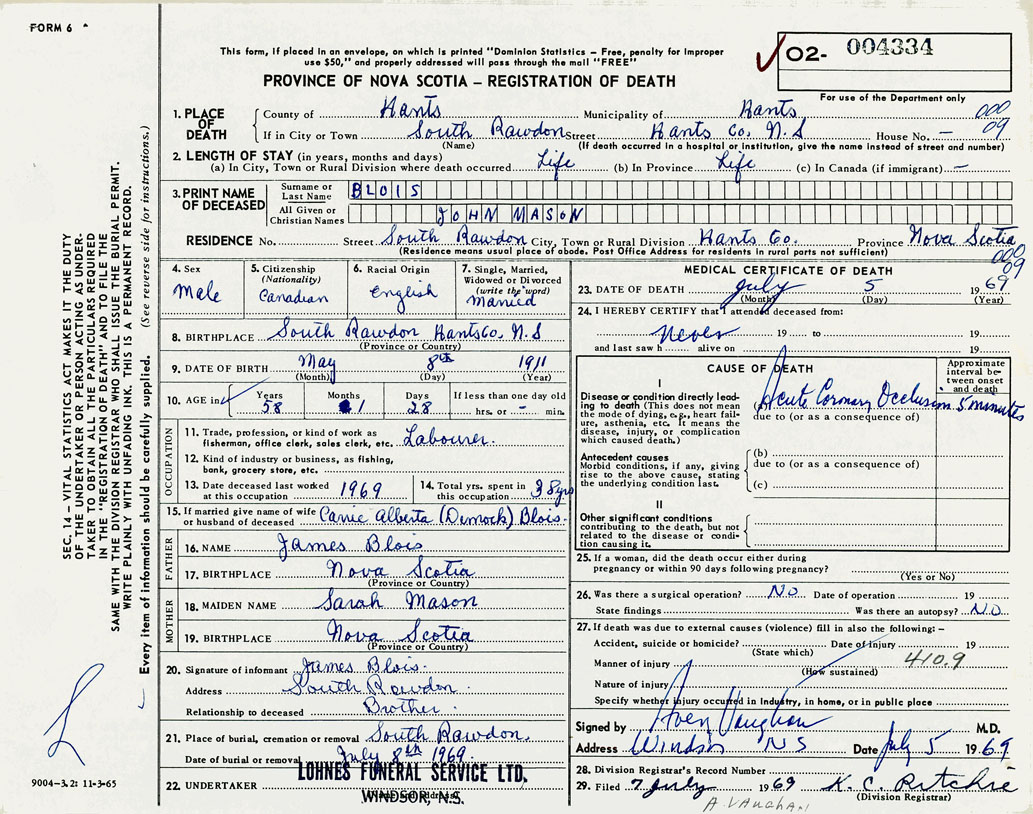 FORM 6
This form, if placed in an envelope, on which is printed "Dominion Statistics – Free, penalty for improper
use $50," and properly addressed will pass through the mail "FREE"
PROVINCE OF NOVA SCOTIA – REGISTRATION OF DEATH
02- 004334
For use of the Department only
000
09
1. PLACE OF DEATH County of Hants Municipality of Hants
If in City or Town South Rawdon Street Hants Co, N.S House No. –
(Name) (If death occurred in a hospital or institution, give the name instead of street and number)
2. LENGTH OF STAY (in years, months and days)
(a) In City, Town or Rural Division where death occurred Life (b) In Province Life (c) In Canada (if immigrant) –
3. PRINT NAME OF DECEASED Surname or Last Name BLOIS
All Given or Christian Names JOHN MASON
RESIDENCE No. Street South Rawdon City, Town or Rural Division Hants Co. Province Nova Scotia
(Residence means usual place of abode. Post Office Address for residents in rural parts not sufficient)
000
09
4. Sex Male
5. Citizenship (Nationality) Canadian
6. Racial Origin English
7. Single, Married, Widowed or Divorced (write the word) Married
8. BIRTHPLACE South Rawdon Hants Co, N.S
(Province or Country)
9. DATE OF BIRTH May 8th 1911
(Month) (Day) (Year)
10. AGE in Years 58 Months 1 Days 28 If less than one day old hrs. or – min.
OCCUPATION
11. Trade, profession, or kind of work as fisherman, office clerk, sales clerk, etc. Labourer.
12. Kind of industry or business, as fishing, bank, grocery store, etc.
13. Date deceased last worked at this occupation 1969
14. Total yrs. spent in this occupation 38 yrs
15. If married give name of wife or husband of deceased Carrie Alberta (Dimock) Blois.
FATHER
16. NAME James Blois
17. BIRTHPLACE Nova Scotia
(Province or Country)
MOTHER
18. MAIDEN NAME Sarah Mason
19. BIRTHPLACE Nova Scotia
(Province or Country)
20. Signature of informant James Blois.
Address South Rawdon.
Relationship to deceased Brother.
21. Place of burial, cremation or removal South Rawdon.
Date of burial or removal July 8th 1969.
22. UNDERTAKER LOHNES FUNERAL SERVICE LTD.
WINDSOR, N.S.
MEDICAL CERTIFICATE OF DEATH
23. DATE OF DEATH July 5 1969
(Month) (Day) (Year)
24. I HEREBY CERTIFY that I attended deceased from:
Never 19 to 19
and last saw h alive on 19
CAUSE OF DEATH
Approximate interval between onset and death
I
Disease or condition directly leading to death (This does not mean the mode of dying, e.g., heart failure, asthenia, etc. It means the disease, injury, or complication which caused death.)
(a) Acute Coronary Occlusion 5 minutes
due to (or as a consequence of)
Antecedent causes
Morbid conditions, if any, giving rise to the above cause, stating the underlying condition last.
(b)
due to (or as a consequence of)
(c)
II
Other significant conditions
contributing to the death, but not related to the disease or condition causing it.
25. If a woman, did the death occur either during
pregnancy or within 90 days following pregnancy?
(Yes or No)
26. Was there a surgical operation? NO Date of operation 19
State findings Was there an autopsy? NO
27. If death was due to external causes (violence) fill in also the following: –
Accident, suicide or homicide? Date of injury 19
(State which)
Manner of injury 410.9
(How sustained)
Nature of injury
Specify whether injury occurred in Industry, in home, or in public place
Signed by Avery Vaughan M.D.
Address Windsor NS Date July 5 1969
28. Division Registrar's Record Number
29. Filed 7 July 1969 K. C. Ritchie
(Division Registrar)
A. VAUGHAN
SEC. 14 – VITAL STATISTICS ACT MAKES IT THE DUTY
OF THE UNDERTAKER OR PERSON ACTING AS UNDER-
TAKER TO OBTAIN ALL THE PARTICULARS REQUIRED
IN THE "REGISTRATION OF DEATH" AND TO FILE THE
SAME WITH THE DIVISION REGISTRAR WHO SHALL ISSUE THE BURIAL PERMIT.
WRITE PLAINLY WITH UNFADING INK. THIS IS A PERMANENT RECORD.
Every item of information should be carefully supplied. (See reverse side for instructions.)
9004-3.2: 11-3-65